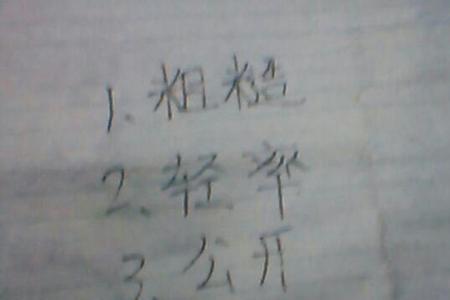 1、粗糙
2、轻率
3、公开